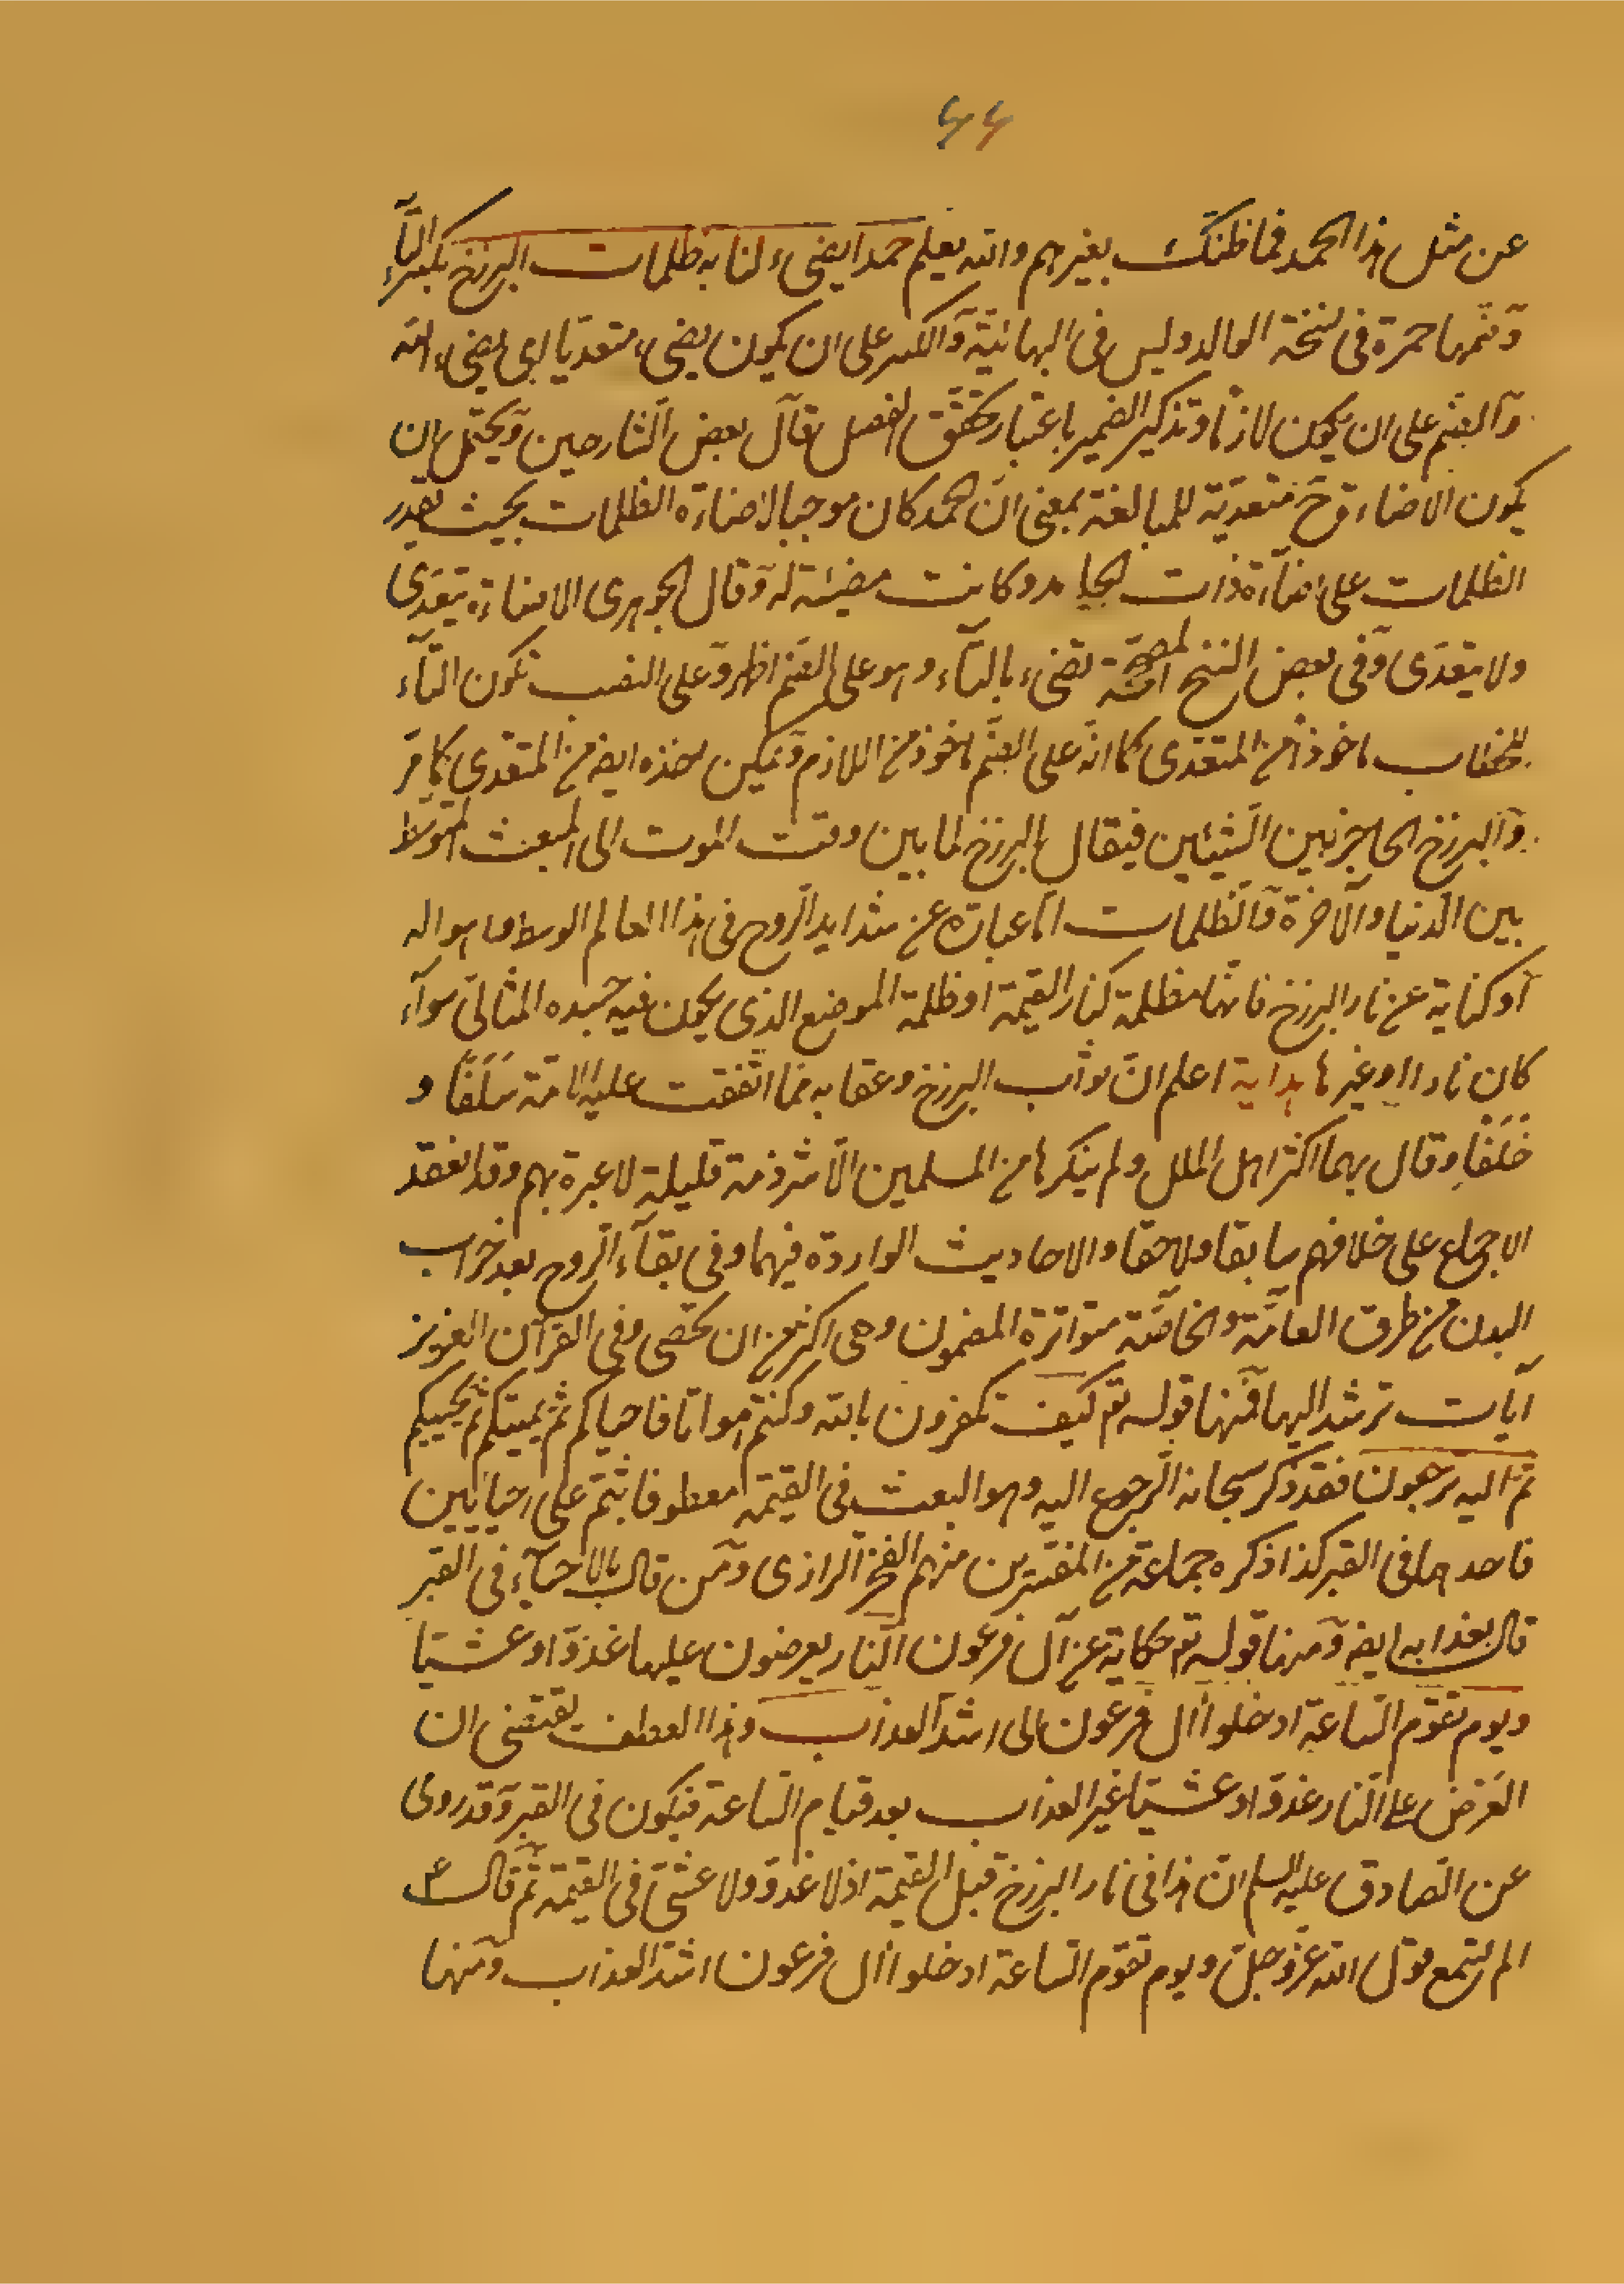 ۶۶
عن مثل هذا الحمد فما ظنك بغيرهم والله يعلم حمدا يضيء لنا به ظلمات البرزخ بكسر التاء
وضمها حمرة في نسخة الوالد وليس في البهائية والكسر على ان يكون يضيء متعديا اي يضيء الله
والضم على ان يكون لازما وتذكير الضمير باعتبار تحقق الفصل قال بعض الشارحين ويحتمل ان
يكون الاضاءة ح متعدية للمبالغة بمعنى ان الحمد كان موجبا لاضاءة الظلمات بحيث تقدر
الظلمات على اضاءة ذات الحامد وكانت مضيئة له وقال الجوهري الاضاءة يتعدى
ولا يتعدى وفي بعض النسخ المصححة تضيء بالتاء وهو على الضم اظهر وعلى النصب تكون التاء
للخطاب ماخوذا من المتعدي كما انه على الضم ماخوذ من اللازم ويمكن اخذه ايضا من المتعدي كما مر
والبرزخ الحاجز بين الشيئين فيقال البرزخ لما بين وقت الموت الى المبعث المتوسط
بين الدنيا والآخرة والظلمات اما عبارة عن شدايد الروح في هذا العالم الوسط واهواله
أو كناية عن نار البرزخ فانها مظلمة كنار القيمة او ظلمة الموضع الذي يكون فيه جسده المثالي سوآء
كان نارا او غيرها هداية اعلم ان ثواب البرزخ وعقابه مما اتفقت عليه الامة سَلَفًا و
خَلَفًا وقال بهما اكثر اهل الملل ولم ينكرها من المسلمين الا شرذمة قليلة لا عبرة بهم وقد انعقد
الاجماع على خلافهم سابقا ولاحقا والاحاديث الواردة فيهما وفي بقاء الروح بعد خراب
البدن من طرق العامة والخاصة متواترة المضمون وهي اكثر من ان تحصى وفي القرآن العزيز
آيات ترشد اليهما فمنها قوله تع كيف تكفرون بالله وكنتم امواتا فاحياكم ثم يميتكم ثم يحييكم
ثم اليه ترجعون فقد ذكر سبحانه الرجوع اليه وهو البعث في القيمة معطوفا بثم على احيائين
فاحدهما في القبر كذا ذكره جماعة من المفسرين منهم الفخر الرازي ومن قال بالاحياء في القبر
قال بعذابه ايضا ومنها قوله تع حكاية عن آل فرعون النار يعرضون عليها غدوّا وعشيّا
ويوم تقوم الساعة ادخلوا آل فرعون الى اشد العذاب وهذا العطف يقتضي ان
العرض على النار غدوا وعشيا غير العذاب بعد قيام الساعة فيكون في القبر وقد روي
عن الصادق عليه السلم ان هذا في نار البرزخ قبل القيمة اذ لا غدو ولا عشي في القيمة ثم قال ع
الم تسمع قول الله عز وجل ويوم تقوم الساعة ادخلوا آل فرعون اشد العذاب ومنها